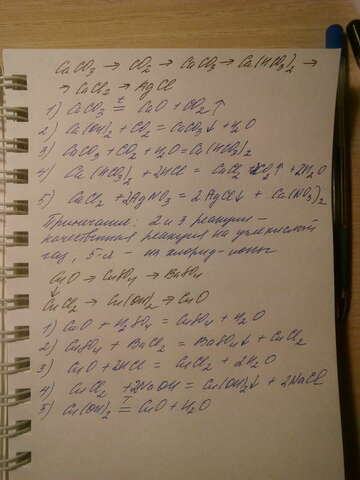 CaCO₃ → CO₂ → CaCO₃ → Ca(HCO₃)₂ →
→ CaCl₂ → AgCl
1) CaCO₃ =ᵗ CaO + CO₂↑
2) Ca(OH)₂ + CO₂ = CaCO₃↓ + H₂O
3) CaCO₃ + CO₂ + H₂O = Ca(HCO₃)₂
4) Ca(HCO₃)₂ + 2HCl = CaCl₂ + 2CO₂↑ + 2H₂O
5) CaCl₂ + 2AgNO₃ = 2AgCl↓ + Ca(NO₃)₂
Примечание: 2 и 3 реакции –
качественная реакция на углекислый
газ, 5-я – на хлорид-ионы
CuO → CuSO₄ → BaSO₄
↓
CuCl₂ → Cu(OH)₂ → CuO
1) CuO + H₂SO₄ = CuSO₄ + H₂O
2) CuSO₄ + BaCl₂ = BaSO₄↓ + CuCl₂
3) CuO + 2HCl = CuCl₂ + 2H₂O
4) CuCl₂ + 2NaOH = Cu(OH)₂↓ + 2NaCl
5) Cu(OH)₂ =ᵀ CuO + H₂O